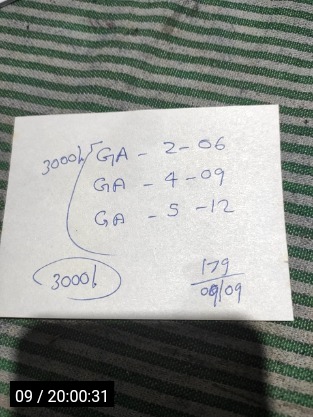 3000/- GA - 2-06
GA - 4-09
GA - 5-12
3000/-
179
09/09
09 / 20:00:31